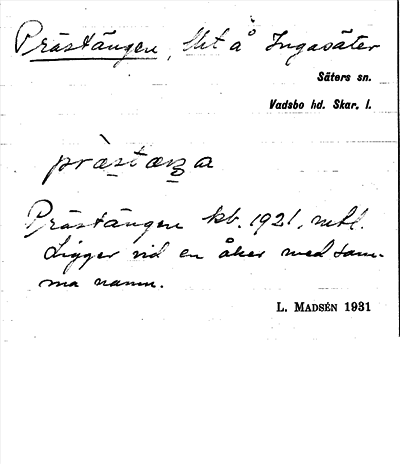 Prästängen, lht å Ingasäter
Säters sn.
Vadsbo hd. Skar. l.
prästæŋa
Prästängen kb. 1921, mtl.
Ligger vid en åker med sam-
ma namn.
L. MADSÉN 1931